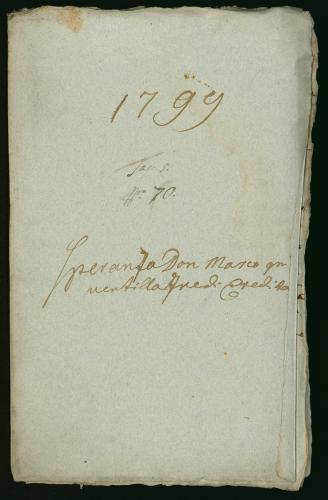 1799
Fas. 5.
No. 70.
Speranza Don Marco qm
ventilla Eredi Credito